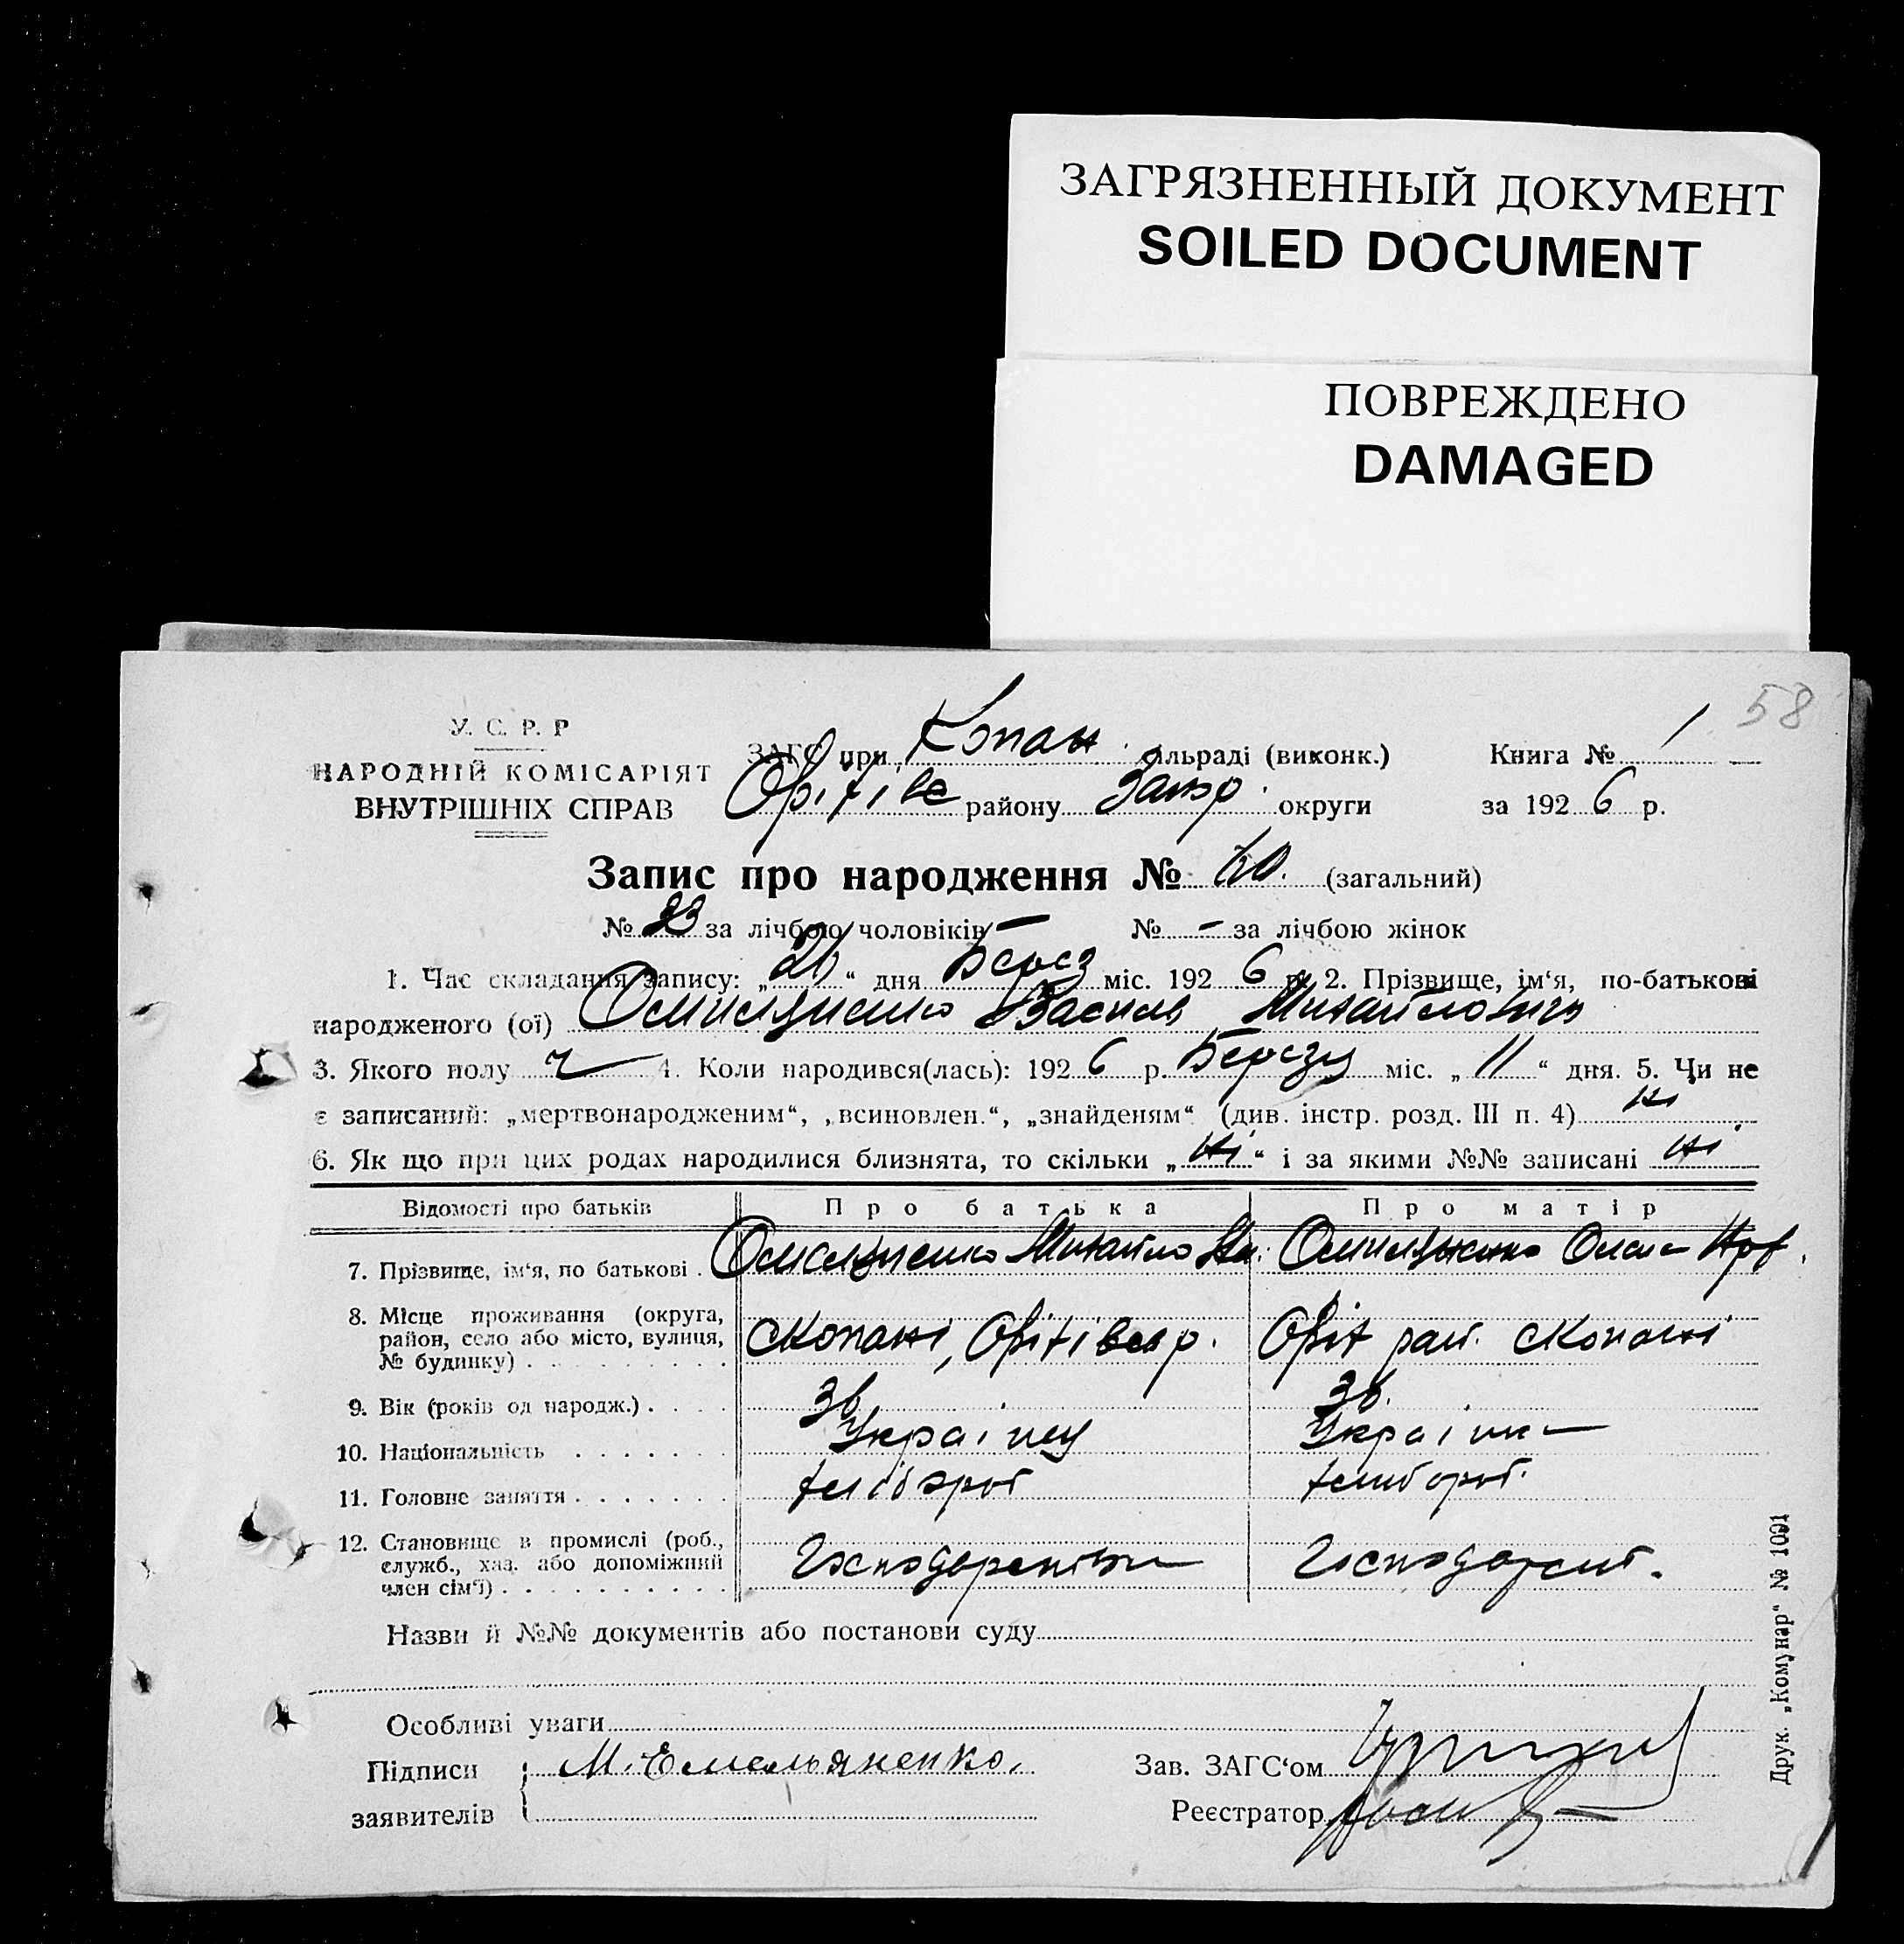 ЗАГРЯЗНЕННЫЙ ДОКУМЕНТ
SOILED DOCUMENT
ПОВРЕЖДЕНО
DAMAGED
58
У. С. Р. Р
НАРОДНІЙ КОМІСАРІЯТ
ВНУТРІШНІХ СПРАВ
ЗАГС при Копан сільраді (виконк.) Книга № 1
Оріхівс району Запор. округи за 1926 р.
Запис про народження № 40. (загальний)
№ 23 за лічбою чоловіків № – за лічбою жінок
1. Час складання запису: „26“ дня Берез міс. 1926 р. 2. Прізвище, ім‘я, по-батькові
народженого (ої) Омиляненко Василь Михайлович
3. Якого полу ч 4. Коли народився(лась): 1926 р. Березня міс. „11“ дня. 5. Чи не
є записаний: „мертвонародженим“, „всиновлен.“, „знайденям“ (див. інстр. розд. III п. 4) ні
6. Як що при цих родах народилися близнята, то скільки „ні“ і за якими №№ записані ні
Відомості про батьків Про батька Про матір
7. Прізвище, ім‘я, по батькові . Омиляненко Михайло Омиляненко
8. Місце проживання (округа,
район, село або місто, вулиця,
№ будинку) . . . . . . . . . с Копані, Оріхівськ р. Оріх рай. с Копані
9. Вік (років од народж.) . . . . 36 36.
10. Національність . . . . . . Українец Українка
11. Головне заняття . . . . . . хлібороб хлібороб.
12. Становище в промислі (роб.,
служб., хаз. або допоміжний
член сім‘ї) . . . . . . . . . .
Назви й №№ документів або постанови суду
Особливі уваги
Підписи М. Емельяненко. Зав. ЗАГС‘ом
заявителів Реєстратор
Друк. „Комунар“ № 1001